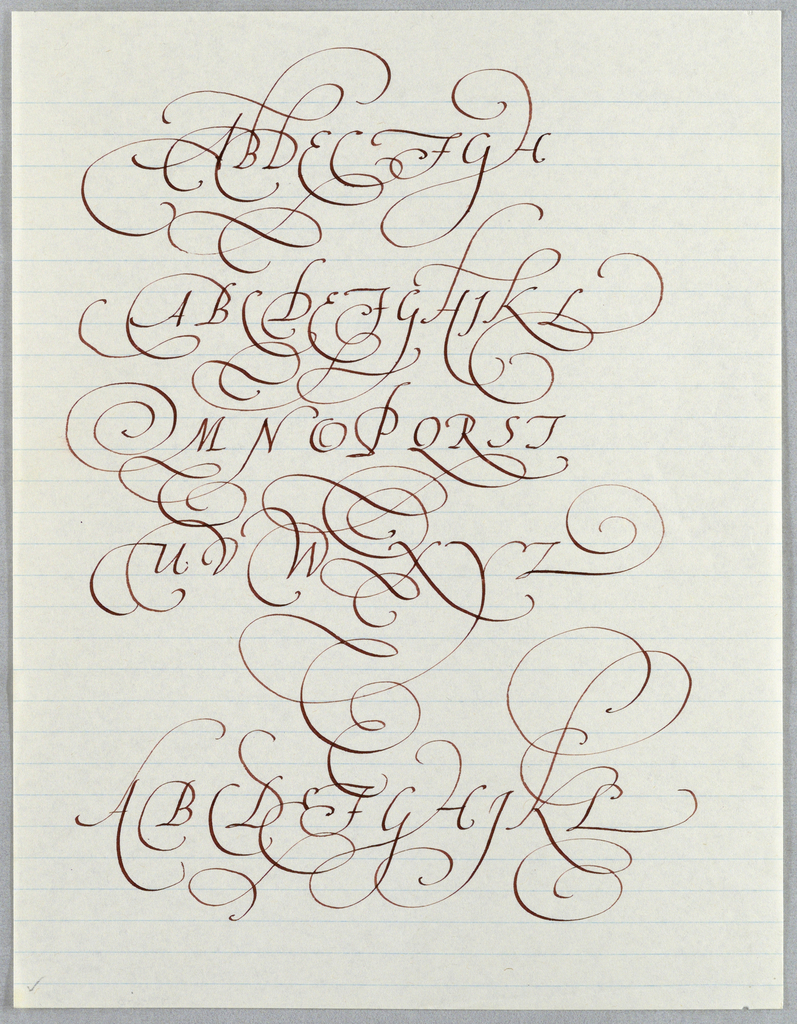 ABDECFGH
ABCDEFGHJKL
MNOPQRST
UVWXYZ
ABCDEFGHJKL